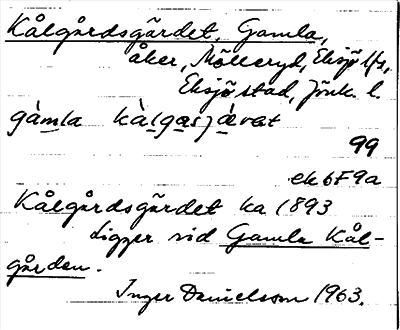 Kålgårdsgärdet, Gamla,
åker, Mölleryd, Eksjö lfs,
Eksjö stad, Jönk. l.
gàmla kàlgasjǽrvat
99
ek 6F9a
Kålgårdsgärdet ka 1893
Ligger vid Gamla Kål-
gården.
Inger Danielsson 1963.